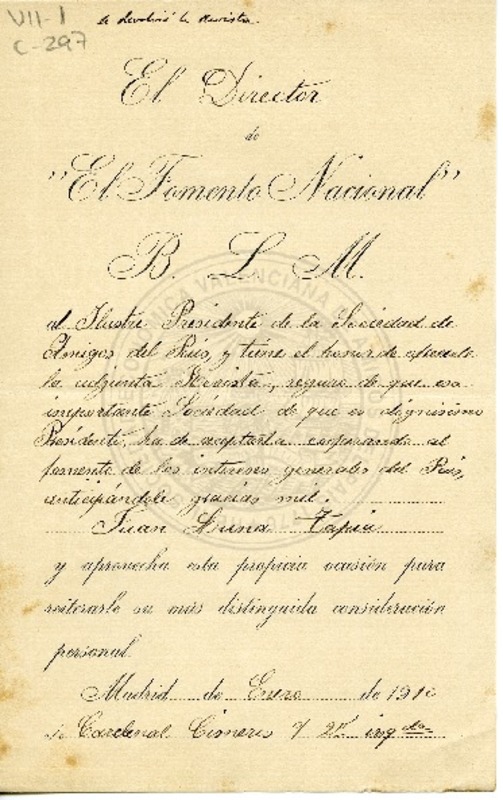 VII-I
C-297
se devolvió la Revista.
El Director
de
"El Fomento Nacional"
B. L. M.
al Ilustre Presidente de la Sociedad de
Amigos del País, y tiene el honor de ofrecerle
la adjunta Revista, seguro de que esa
importante Sociedad de que es dignísimo
Presidente, ha de aceptarla cooperando al
fomento de los intereses generales del País,
anticipándole gracias mil.
Juan Luna Tapia
y aprovecha esta propicia ocasión para
reiterarle su más distinguida consideración
personal.
Madrid de Enero de 1910
Cardenal Cisneros 7 2º izqda